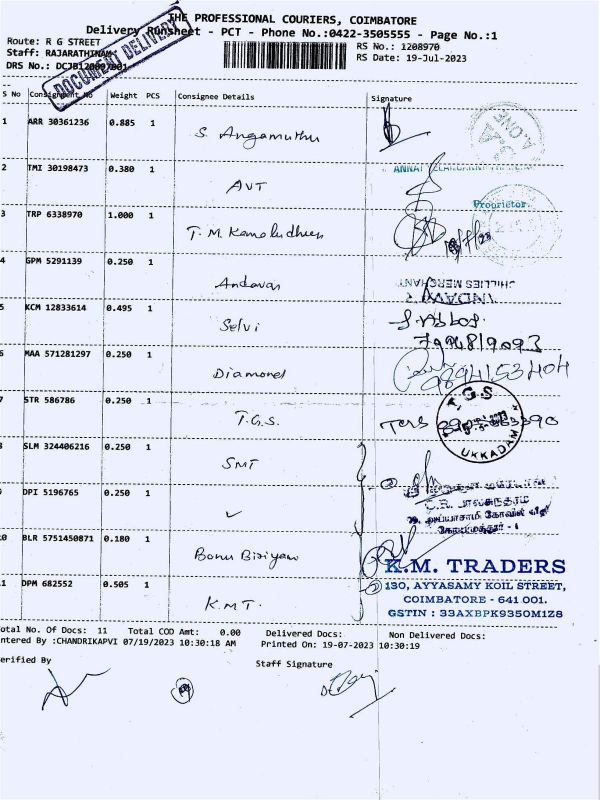 THE PROFESSIONAL COURIERS, COIMBATORE
Delivery Runsheet - PCT - Phone No.:0422-3505555 - Page No.:1
Route: R G STREET
RS No.: 1208970
Staff: RAJARATHINAM
RS Date: 19-Jul-2023
DRS No.:
DOCUMENT DELIVERY
S No Consignment No Weight PCS Consignee Details Signature
1 ARR 30361236 0.885 1 S. Angamuthu
A.ONE
2 TMI 30198473 0.380 1 AVT
ANNAI
Proprietor
3 TRP 6338970 1.000 1 T.M. Kamaludheen
4 GPM 5291139 0.250 1 Andavar
CHILLIES MERCHANT
5 KCM 12833614 0.495 1 Selvi
6 MAA 571281297 0.250 1 Diamond
9894153404
7 STR 586786 0.250 1 T.G.S.
T.G.S
UKKADAM
8 SLM 324406216 0.250 1 SMT
9 DPI 5196765 0.250 1 ✓
10 BLR 5751450871 0.180 1 Bonu Biriyani
11 DPM 682552 0.505 1 K.M.T.
K.M. TRADERS
130, AYYASAMY KOIL STREET,
COIMBATORE - 641 001.
GSTIN : 33AXBPK9350M1Z8
Total No. Of Docs: 11 Total COD Amt: 0.00 Delivered Docs: Non Delivered Docs:
Entered By :CHANDRIKAPVI 07/19/2023 10:30:18 AM Printed On: 19-07-2023 10:30:19
Verified By Staff Signature